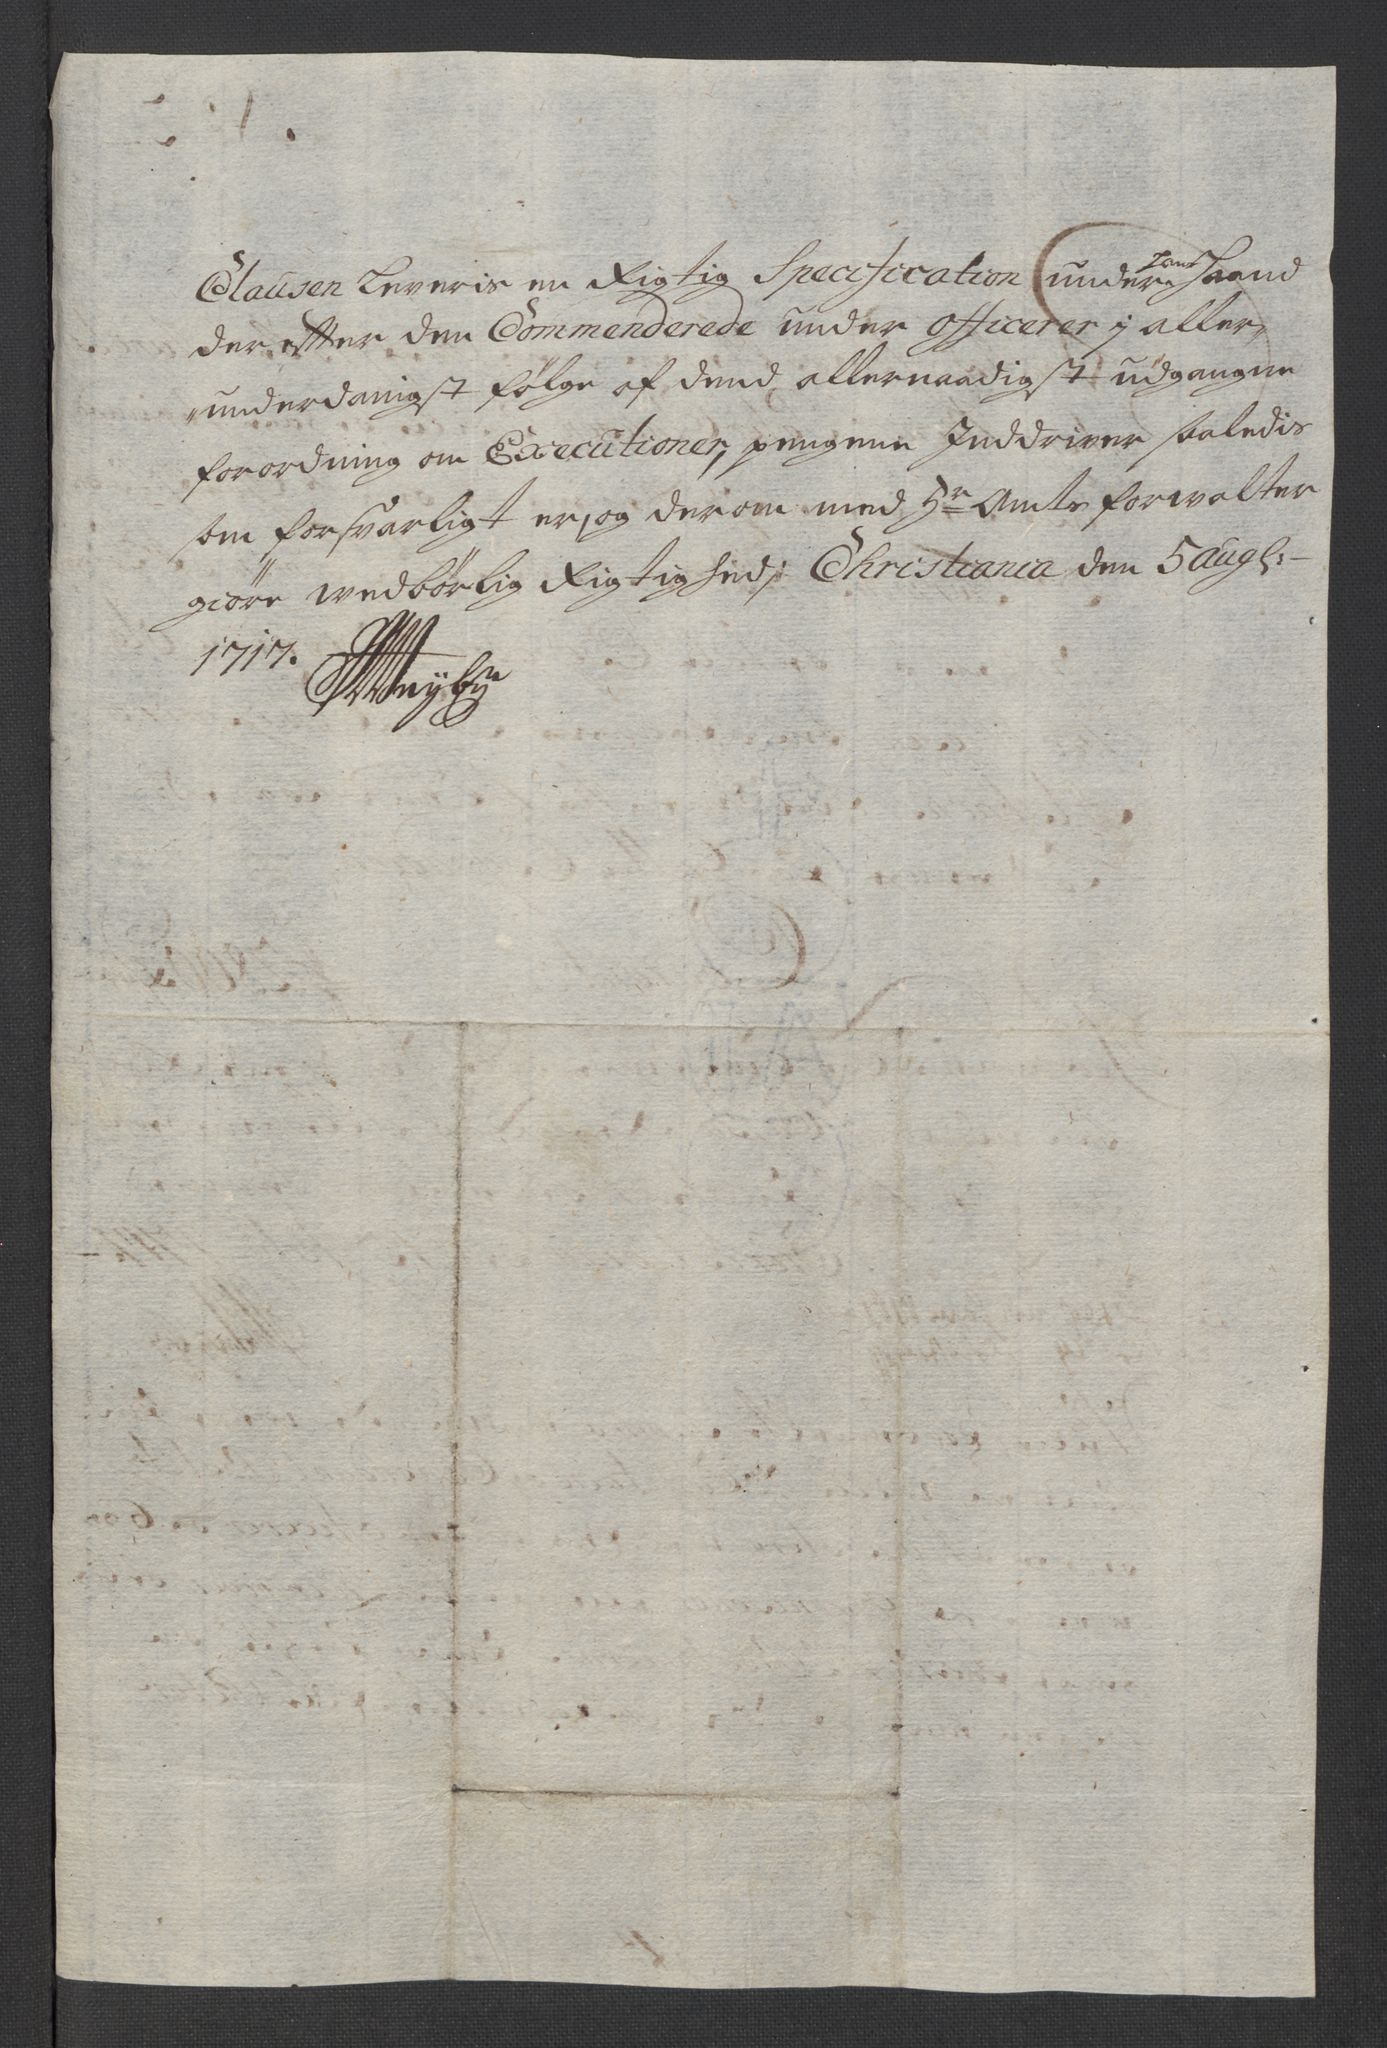 Clausen Leveris en Rigtig Specification under hans Haand
der efter den Commenderede under officerer i aller„
„underdanigst følge af dend allernaadigst udgangne
forordning om Executioner, pengene Inddriver saaledis
som forsvarligt er, og derom med Hr Amts forwalter
giøre wedbørlig Rigtighed; Christiania den 5 aug:
1717.